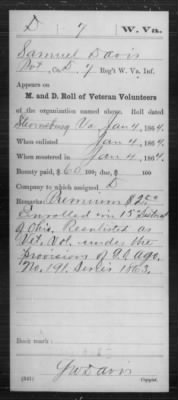 D 7 W. Va.
Samuel Davis
Pvt., Co. D, 7 Reg't W. Va. Inf.
Appears on
M. and D. Roll of Veteran Volunteers
of the organization named above. Roll dated
Va Jan 4, 1864.
When enlisted Jan 4, 1864.
When mustered in Jan 4, 1864.
Bounty paid, $ 60 100; due, $ 100
Company to which assigned D
Remarks: Premium $2 00
Enrolled in 15" District
of Ohio. Reenlisted as
Vet. Vol. under the
provision of G.O. AGO.
No. 191. Series 1863.
J W Davis
Copyist.